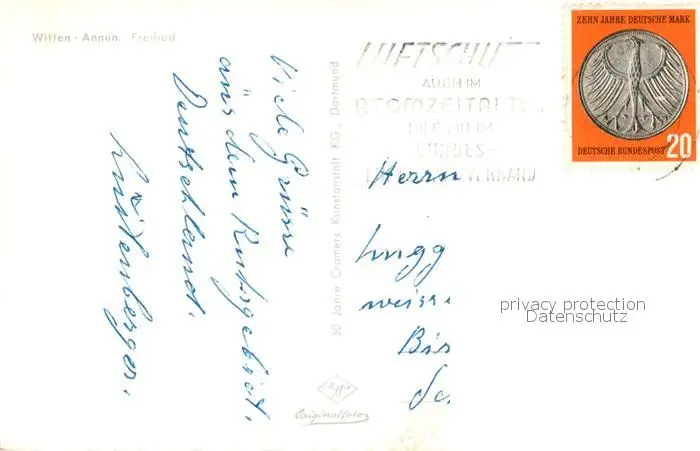 Witten - Annen. Freibad
Viele Grüsse
aus dem Ruhrgebiet.
Deutschland.
50 Jahre Cramers Kunstanstalt KG., Dortmund
Originalfoto
LUFTSCHUTZ
AUCH IM
ATOMZEITALTER
HILF MIT IM
BUNDES-
VERBAND
ZEHN JAHRE DEUTSCHE MARK
DEUTSCHE BUNDESPOST 20
Herrn
Lugg
weiss.
Bis
Sc.
privacy protection
Datenschutz